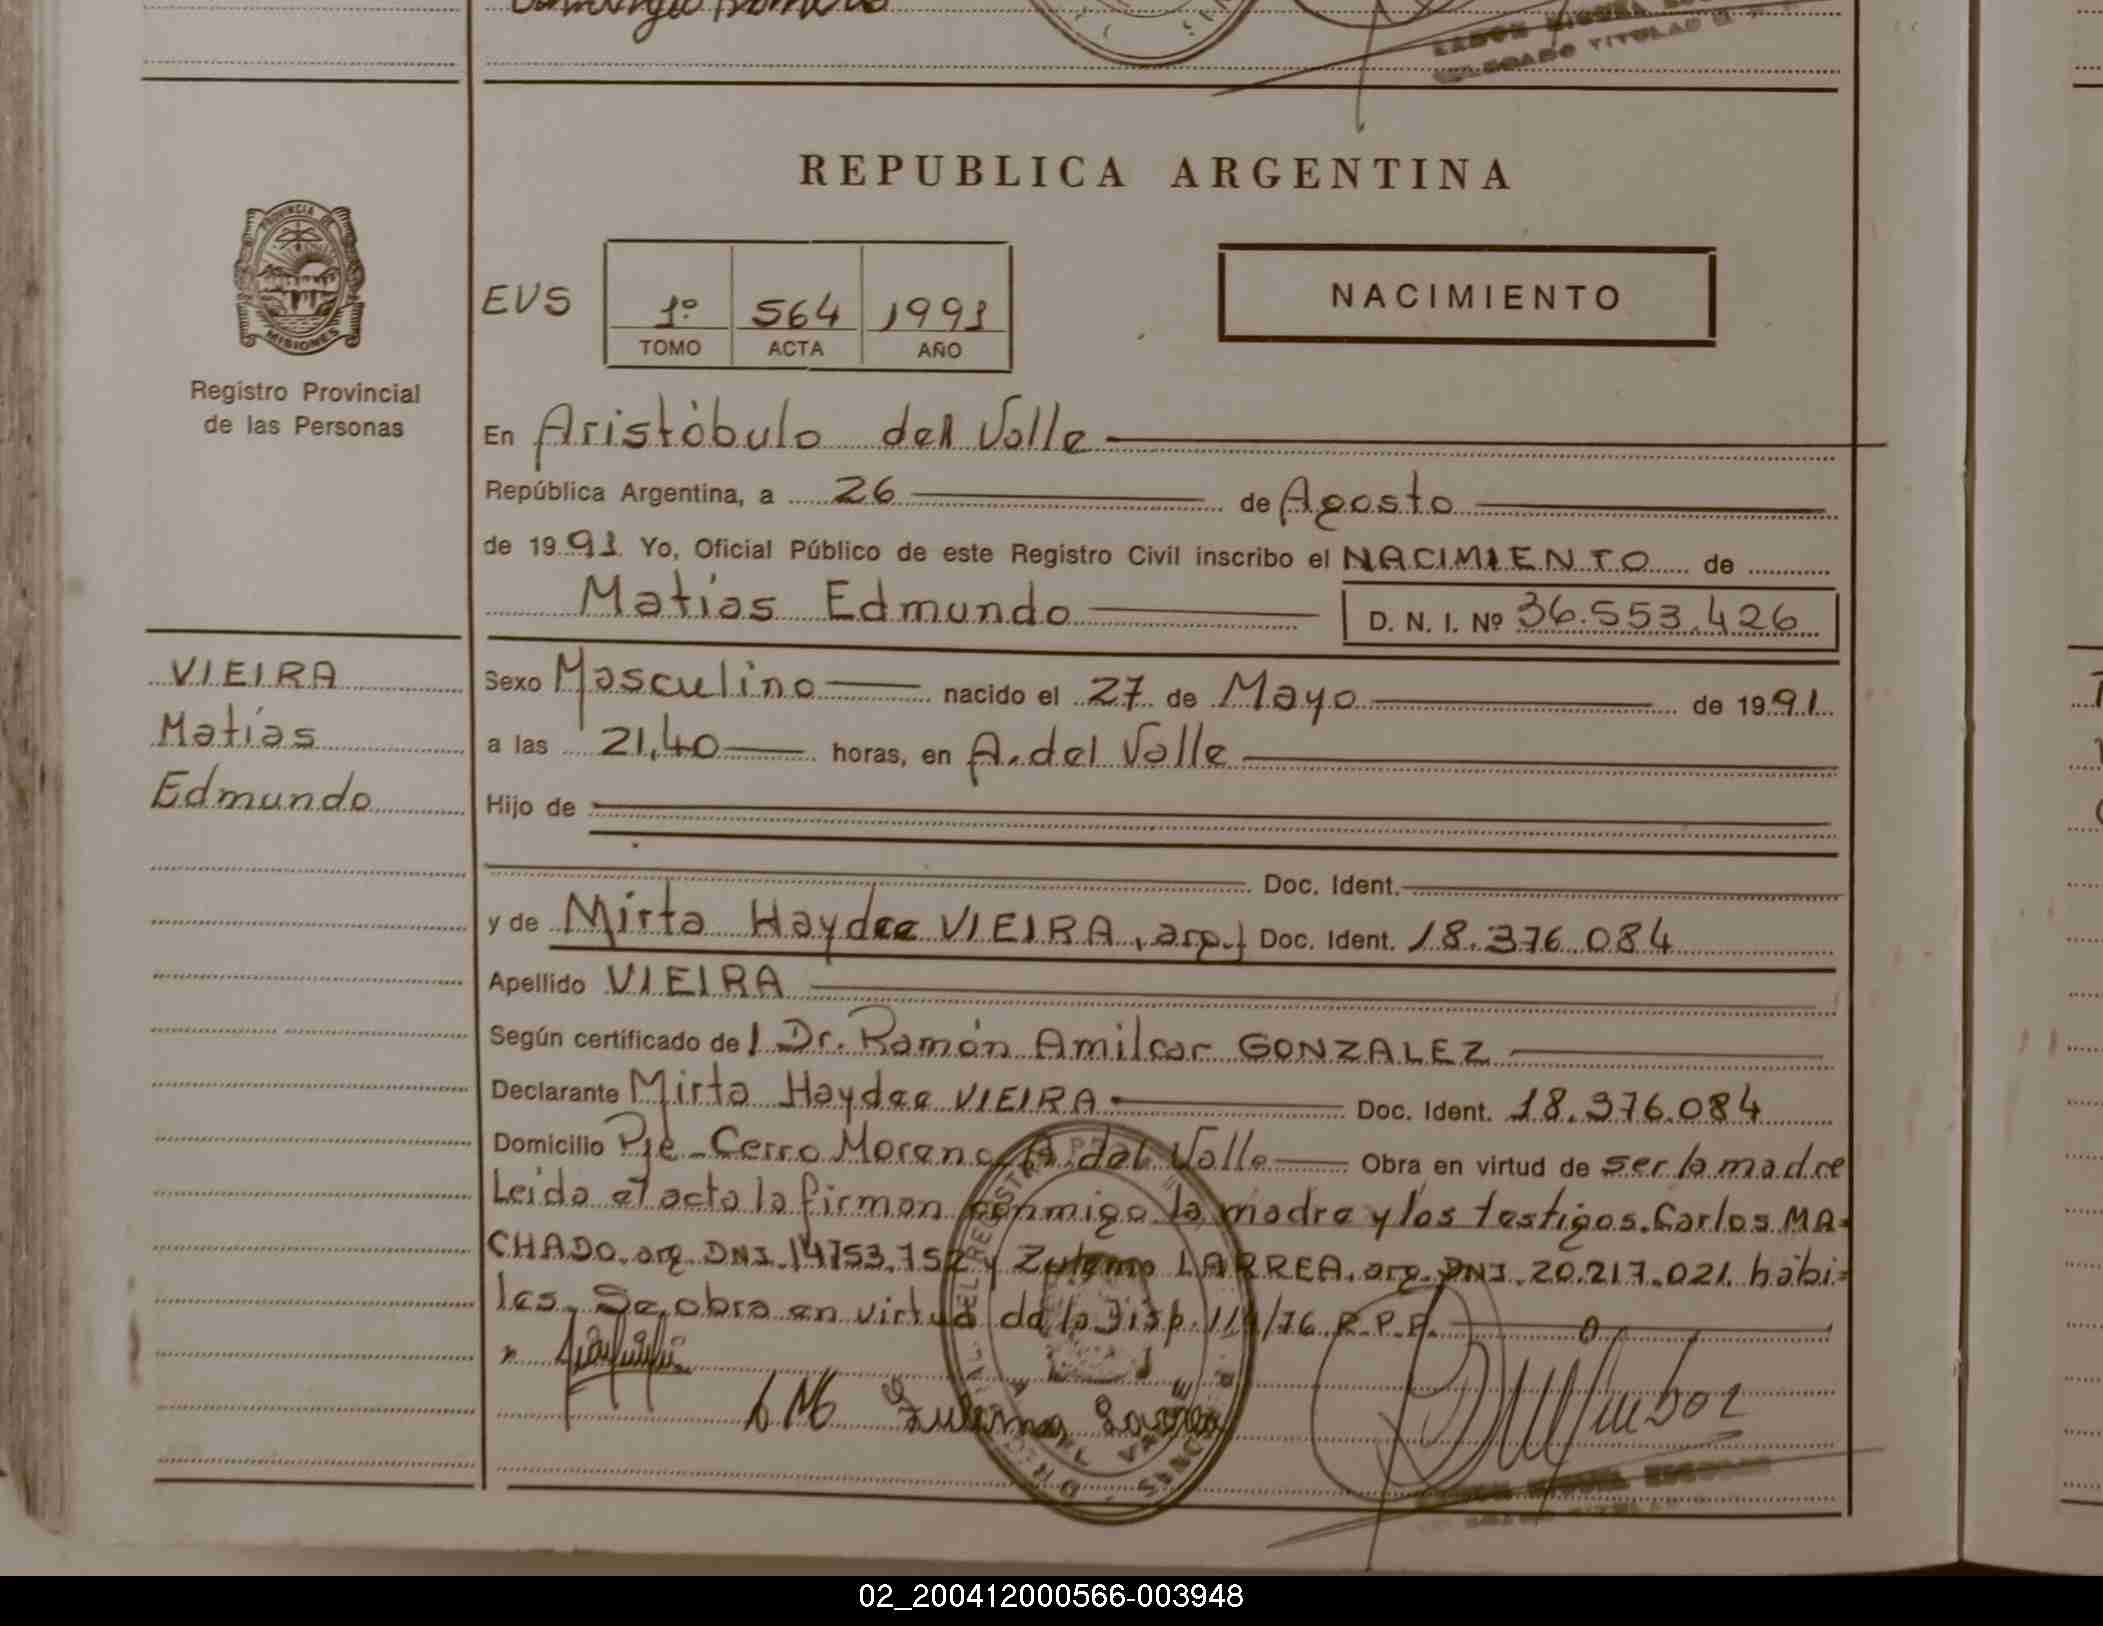 REPUBLICA ARGENTINA
PROVINCIA DE
MISIONES
Registro Provincial
de las Personas
EVS
1º 564 1991
TOMO ACTA AÑO
NACIMIENTO
En Aristóbulo del Valle
República Argentina, a 26 de Agosto
de 1991 Yo, Oficial Público de este Registro Civil inscribo el NACIMIENTO de
Matías Edmundo D. N. I. Nº 36.553.426
VIEIRA
Matías
Edmundo
Sexo Masculino nacido el 27 de Mayo de 1991
a las 21,40 horas, en A. del Valle
Hijo de
Doc. Ident.
y de Mirta Haydee VIEIRA, arg. Doc. Ident. 18.376.084
Apellido VIEIRA
Según certificado de l Dr. Ramón Amilcar GONZALEZ
Declarante Mirta Haydee VIEIRA Doc. Ident. 18.376.084
Domicilio Pje. Cerro Moreno A. del Valle Obra en virtud de ser la madre
Leida el acta la firman conmigo la madre y los testigos. Carlos MA-
CHADO. arg. DNI. 14753.752 y Zulema LARREA. arg. DNI. 20.217.021. habi=
les. Se obra en virtud de la Disp. 114/76 R.P.P.
Zulema Larrea
02_200412000566-003948